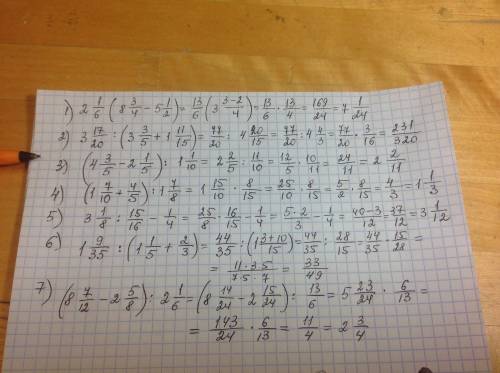 1) 2 1/6 (8 3/4 - 5 1/2) = 13/6 (3 (3-2)/4) = 13/6 · 13/4 = 169/24 = 7 1/24
2) 3 17/20 : (3 3/5 + 1 11/15) = 77/20 : 4 20/15 = 77/20 : 4 4/3 = 77/20 · 3/16 = 231/320
3) (4 3/5 - 2 1/5) : 1 1/10 = 2 2/5 : 11/10 = 12/5 · 10/11 = 24/11 = 2 2/11
4) (1 7/10 + 4/5) : 1 7/8 = 1 15/10 · 8/15 = 25/10 · 8/15 = 5/2 · 8/15 = 4/3 = 1 1/3
5) 3 1/8 : 15/16 - 1/4 = 25/8 · 16/15 - 1/4 = 5·2/3 - 1/4 = (40-3)/12 = 37/12 = 3 1/12
6) 1 9/35 : (1 1/5 + 2/3) = 44/35 : (1 (3+10)/15) = 44/35 : 28/15 = 44/35 · 15/28 =
= 11·3·5/7·5·7 = 33/49
7) (8 7/12 - 2 5/8) : 2 1/6 = (8 14/24 - 2 15/24) : 13/6 = 5 23/24 · 6/13 =
= 143/24 · 6/13 = 11/4 = 2 3/4